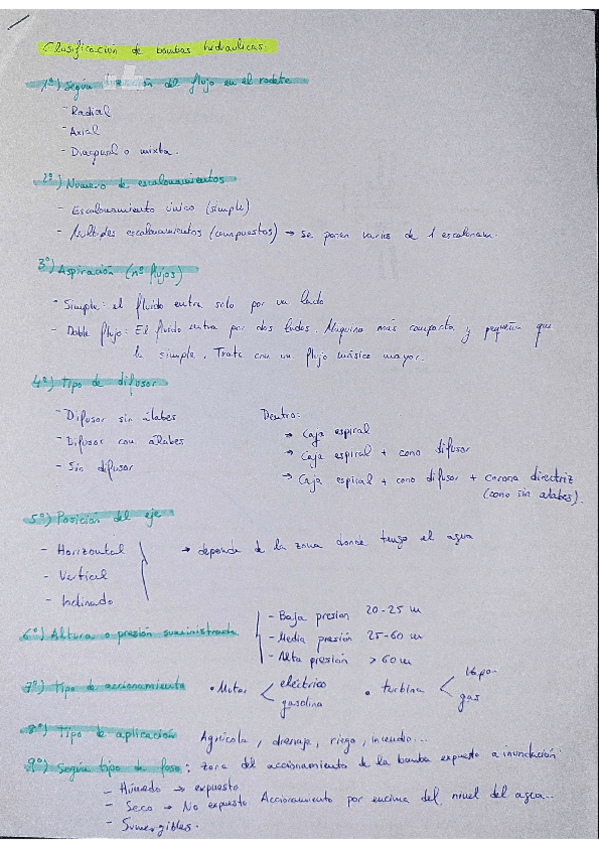 Clasificación de bombas hidraulicas.
1º) Según dirección del flujo en el rodete
- Radial
- Axial
- Diagonal o mixta.
2º) Número de escalonamientos
- Escalonamiento único (simple)
- Múltiples escalonamientos (compuestos) → se ponen varios de 1 escalonam.
3º) Aspiración (nº flujos)
- Simple: el fluido entra solo por un lado
- Doble flujo: El fluido entra por dos lados. Maquina más compacta y pequeña que
la simple. Trata con un flujo másico mayor.
4º) Tipo de difusor
- Difusor sin álabes
- Difusor con álabes
- Sin difusor
Dentro:
→ Caja espiral
→ Caja espiral + cono difusor
→ Caja espiral + cono difusor + corona directriz
(cono sin alabes).
5º) Posición del eje
- Horizontal
- Vertical
- Inclinado
→ depende de la zona donde tengo el agua
6º) Altura o presión suministrada
- Baja presion 20-25 m
- Media presión 25-60 m
- Alta presión > 60 m
7º) Tipo de accionamiento
• Motor
eléctrico
gasolina
• turbina
vapor
gas
8º) Tipo de aplicación Agrícola, drenaje, riego, incendio...
9º) Según tipo de foso: zona del accionamiento de la bomba expuesto a inundación
- Húmedo → expuesto
- Seco → No expuesto Accionamiento por encima del nivel del agua...
- Sumergibles.